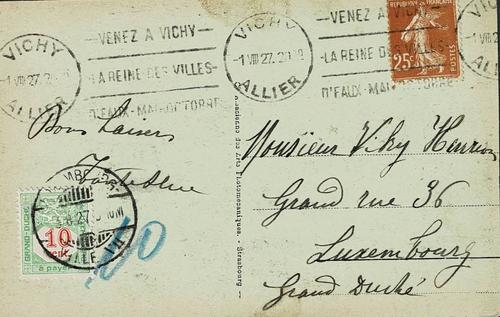 VICHY
1 VIII 27. 20
ALLIER
-VENEZ A VICHY-
LA REINE DES VILLES-
D'EAUX-MAI-OCTOBRE
VICHY
1 VIII 27. 20
ALLIER
-VENEZ A VICHY-
-LA REINE DES VILLES-
D'EAUX-MAI-OCTOBRE
RÉPUBLIQUE FRANÇAISE
25c
POSTES
Bons baisers
GRAND-DUCHÉ
10
cent.
à payer
VILLE
10
Strasbourg
Monsieur Vihy
Grand rue 36
Luxembourg
Grand Duché